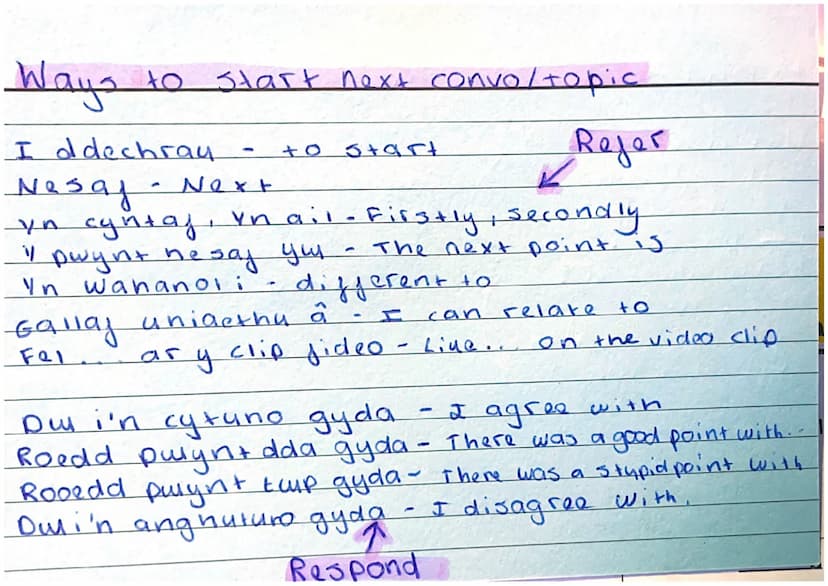 Ways to start next convo/topic
I ddechrau - to start
Refer
Nesaf - Next
Yn cyntaf, Yn ail - Firstly, secondly
Y pwynt nesaf yw - The next point is
Yn wahanol i - different to
Gallaf uniaethu â - I can relate to
Fel... ar y clip fideo - Like... on the video clip
Dwi'n cytuno gyda - I agree with
Roedd pwynt dda gyda - There was a good point with...
Rooedd pwynt twp gyda - There was a stupid point with
Dwi'n anghuturo gyda - I disagree with.
Respond